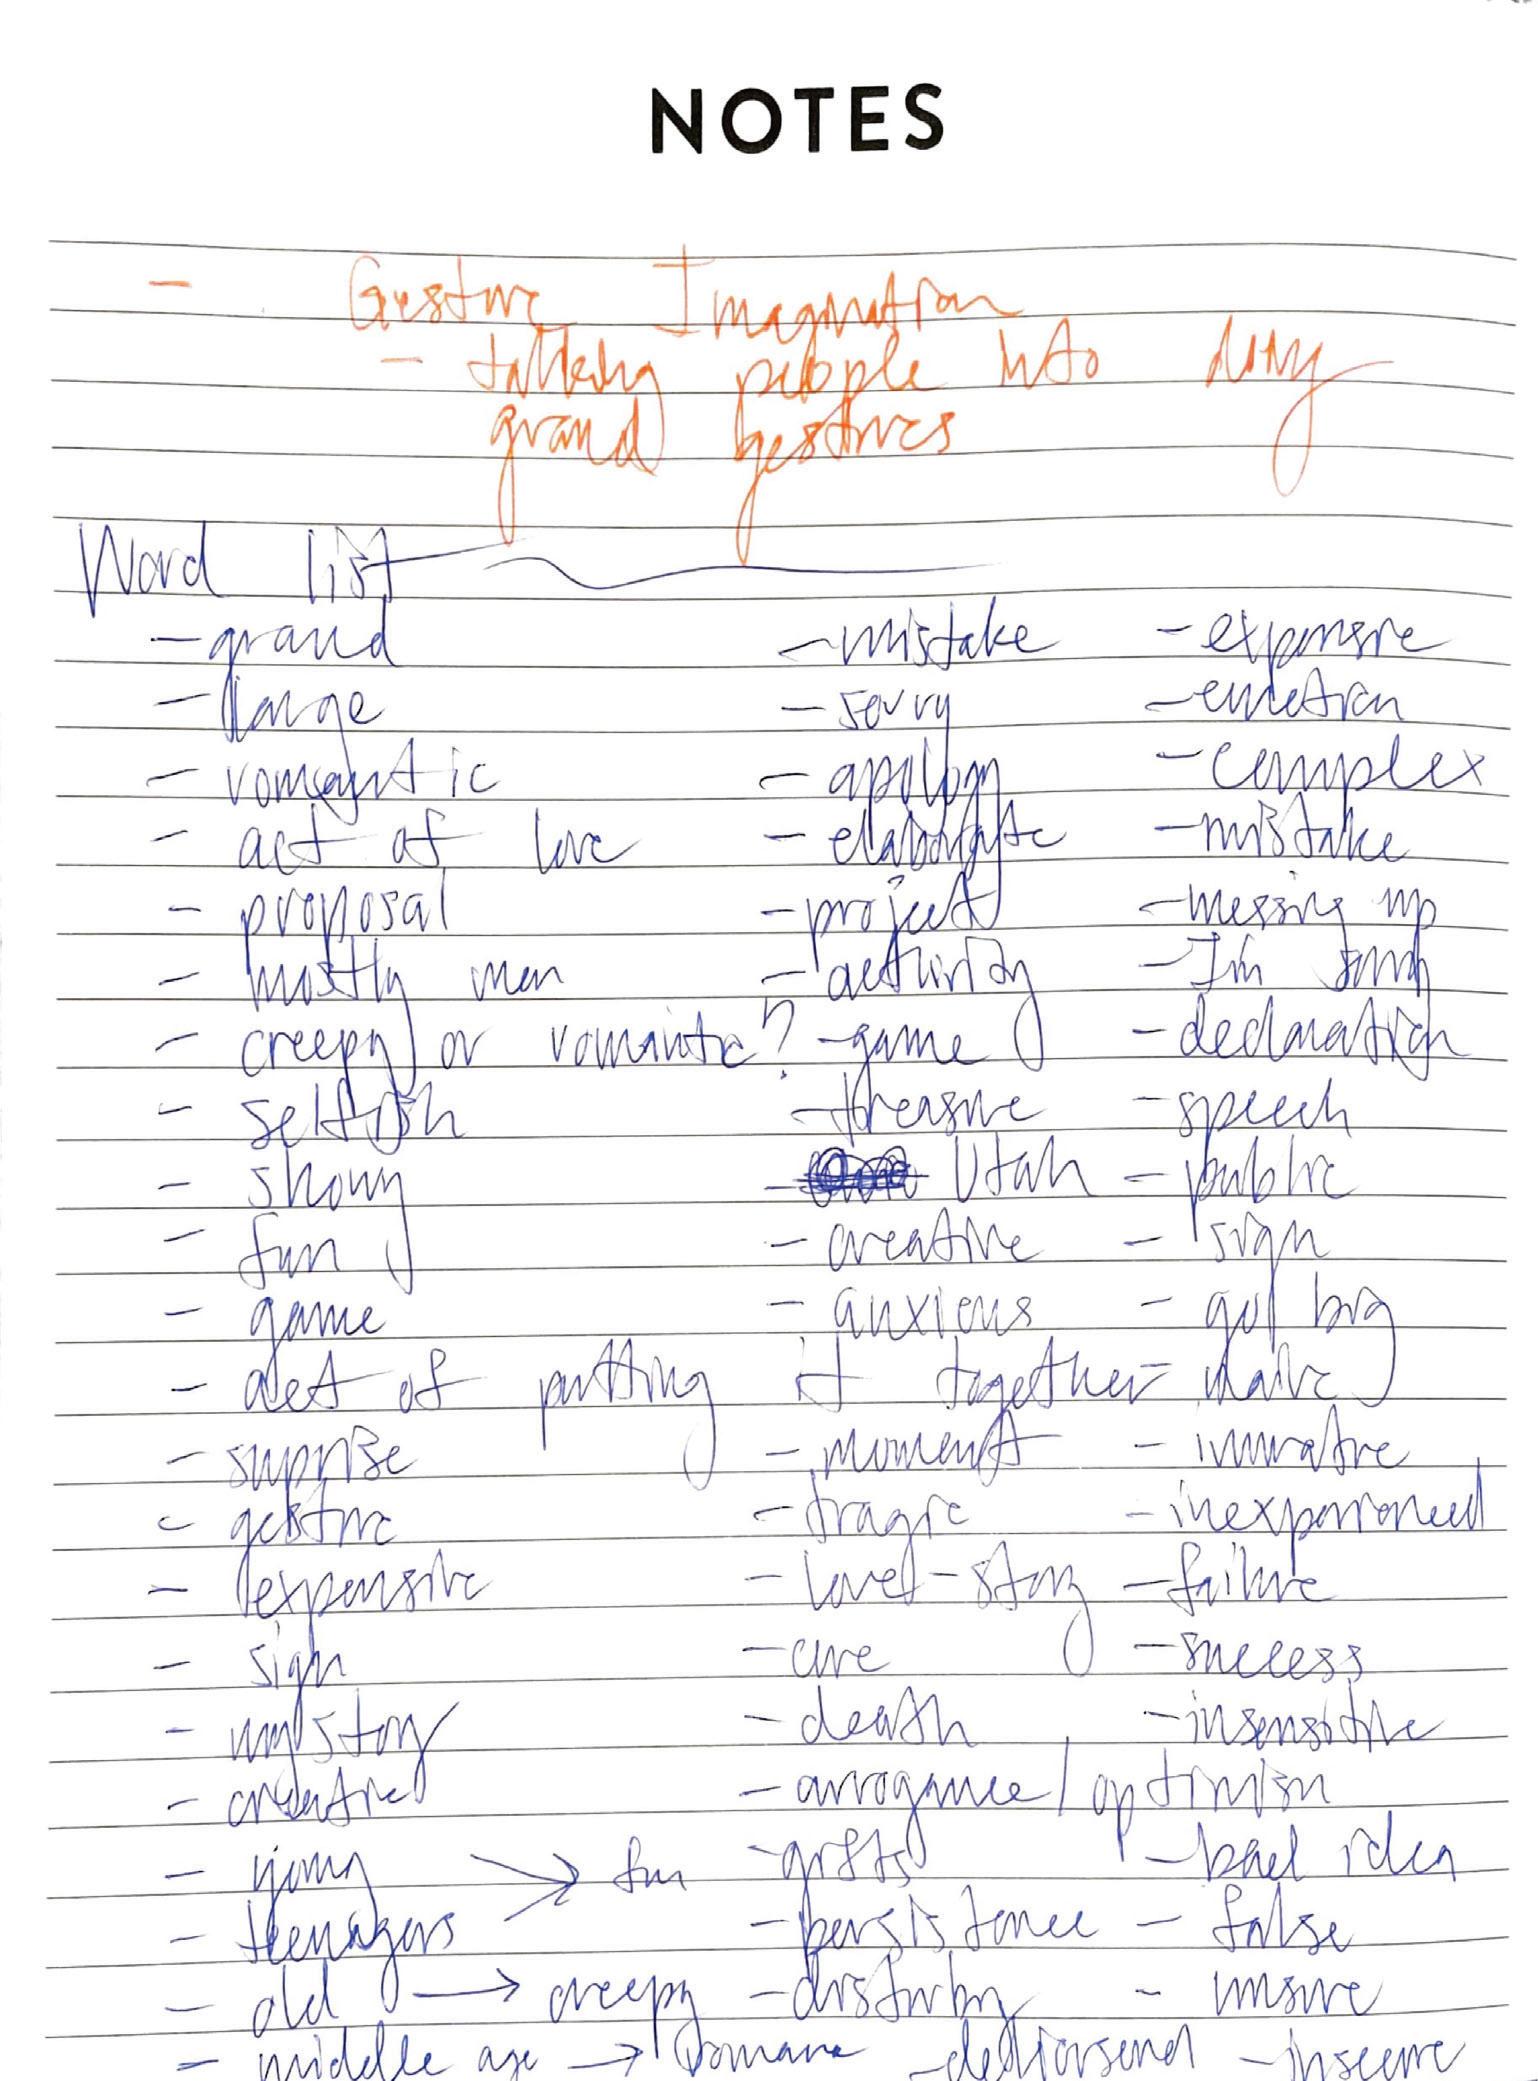 NOTES
- Gesture Imagination
- talking people into doing
grand gestures
Word list
- grand
- large
- romantic
- act of love
- proposal
- mostly men
- creepy or romantic?
- selfish
- showy
- fun
- game
- act of putting it together
- suprise
- gesture
- expensive
- sign
- my story
- creative
- young
- teenagers → fun
- old → creepy
- middle age → romance
- mistake
- sorry
- apology
- elaborate
- project
- activity
- game
- treasure
- Utah
- creative
- anxious
- moment
- tragic
- love-story
- cure
- death
- arrogance / optimism
- gifts
- persistence
- disturby
- expansive
- emotion
- complex
- mistake
- messing up
- I'm sorry
- declaration
- speech
- public
- sign
- go big
- naive
- immature
- inexperienced
- failure
- success
- insensitive
- bad idea
- false
- unsure
- insecure